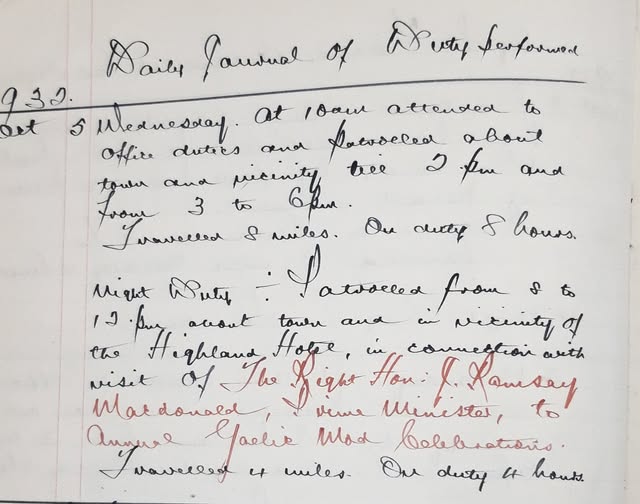 Daily Journal of Duty performed
932.
Oct 5 Wednesday. At 10am attended to
office duties and patrolled about
town and vicinity till 2 pm and
from 3 to 6pm.
Travelled 8 miles. On duty 8 hours.
Night Duty ÷ Patrolled from 8 to
12 pm about town and in vicinity of
the Highland Hotel, in connection with
visit of The Right Hon: J. Ramsay
Macdonald, Prime Minister, to
Annual Gaelic Mod Celebrations.
Travelled 4 miles. On duty 4 hours.